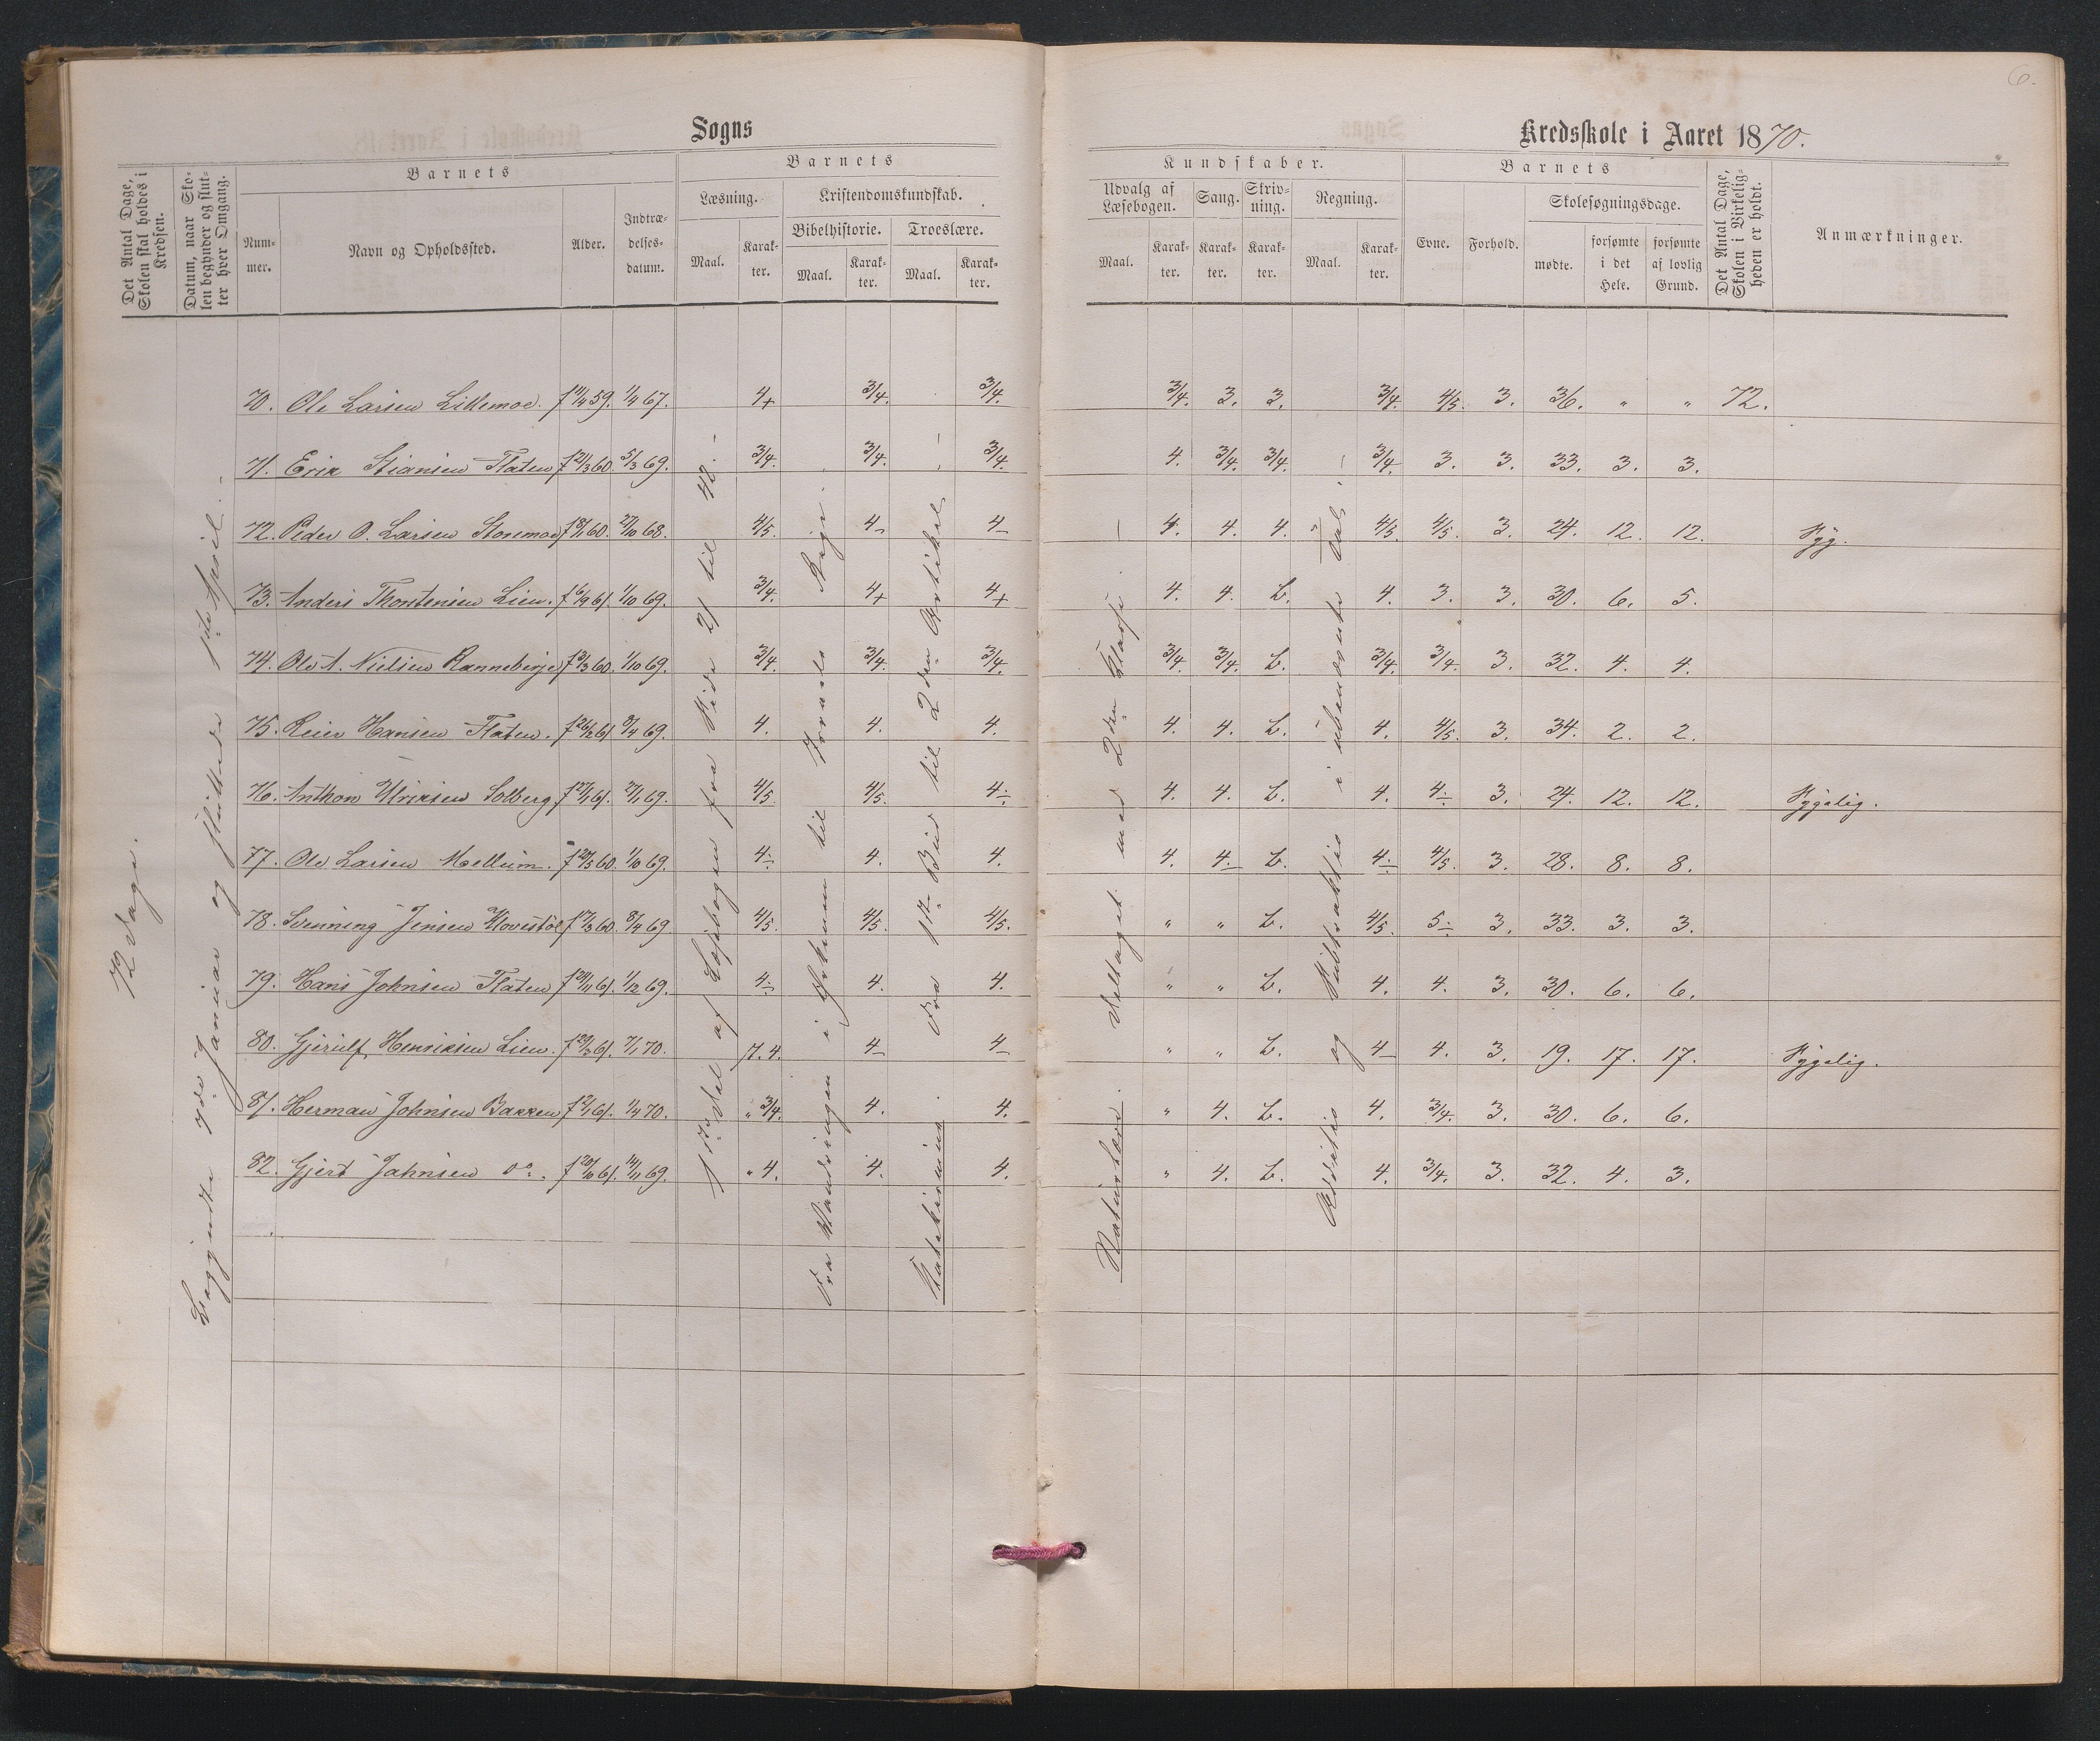 6.
Sogns
Kredsskole i Aaret 1870.
Det Antal Dage, Skolen skal holdes i Kredsen.
Datum, naar Skolen begynder og slutter hver Omgang.
Barnets
Nummer.
Navn og Opholdssted.
Alder.
Indtrædelsesdatum.
Barnets
Læsning.
Maal.
Karakter.
Kristendomskundskab.
Bibelhistorie.
Maal.
Karakter.
Troeslære.
Maal.
Karakter.
Kundskaber.
Udvalg af Læsebogen.
Maal.
Karakter.
Sang.
Karakter.
Skrivning.
Karakter.
Regning.
Maal.
Karakter.
Barnets
Evne.
Forhold.
Skolesøgningsdage.
mødte.
forsømte i det Hele.
forsømte af lovlig Grund.
Det Antal Dage, Skolen i Virkeligheden er holdt.
Anmærkninger.
72 Dage.
Begyndte 7de Januar og sluttede 1ste April.
70. Ole Larsen Lillemoe. f 14/4 59. 1/4 67. 4+ 3/4. 3/4. 3/4. 3. 3. 3/4. 4/5. 3. 36. " " 72.
71. Erik Stiansen Flaten f 21/3 60. 5/3 69. 3/4. 3/4. 3/4. 4. 3/4. 3/4. 3/4. 3. 3. 33. 3. 3.
72. Peder O. Larsen Storemoe f 8/1 60. 27/10 68. 4/5. 4- 4- 4. 4. 4. 4/5. 4/5. 3. 24. 12. 12. Syg.
73. Anders Thorstensen Lien. f 6/9 61. 1/10 69. 3/4. 4+ 4+ 4. 4. b. 4. 3. 3. 30. 6. 5.
74. Ole A. Nielsen Ranneberge f 3/3 60. 1/10 69. 3/4. 3/4. 3/4. 3/4. 3/4. b. 3/4. 3/4. 3. 32. 4. 4.
75. Reier Hansen Flaten. f 26/2 61 8/4 69. 4. 4. 4. 4. 4. b. 4. 4/5. 3. 34. 2. 2.
76. Anthon Ulriksen Solberg. f 17/1 61. 2/1 69. 4/5. 4/5. 4- 4. 4. b. 4. 4- 3. 24. 12. 12. Sygelig.
77. Ole Larsen Moellum. f 20/5 60. 1/10 69. 4- 4. 4. 4. 4- b. 4- 4/5. 3. 28. 8. 8.
78. Svenning Jensen Klovestöl f 17/3 60. 8/4 69 4/5. 4/5. 4/5. " " b. 4/5. 5- 3. 33. 3. 3.
79. Hans Johnsen Flaten f 24/11 61. 1/2 69. 4- 4. 4. " " b. 4. 4. 3. 30. 6. 6.
80. Gjerulf Henriksen Lien. f 29/3 61. 7/1 70. 7. 4. 4- 4- " " b. 4- 4. 3. 19. 17. 17. Sygelig.
81. Herman Johnsen Bakken f 2/1 61. 1/4 70. " 3/4. 4. 4. " 4. b. 4. 3/4. 3. 30. 6. 6.
82. Gjert Jahnsen do. f 20/10 61. 14/11 69. " 4. 4. 4. " 4. b. 4. 3/4. 3. 32. 4. 3.
1ste Del af Læsebogen fra Side 21 til 40.
Fra Vandringen i Ørkenen til Israels Rige.
Katekismus Fra 1ste Bud til 2den Artikel.
Naturlære. Deltaget med 2den Klasse.
Addition og Subtraktion i ubenævnte Tal.